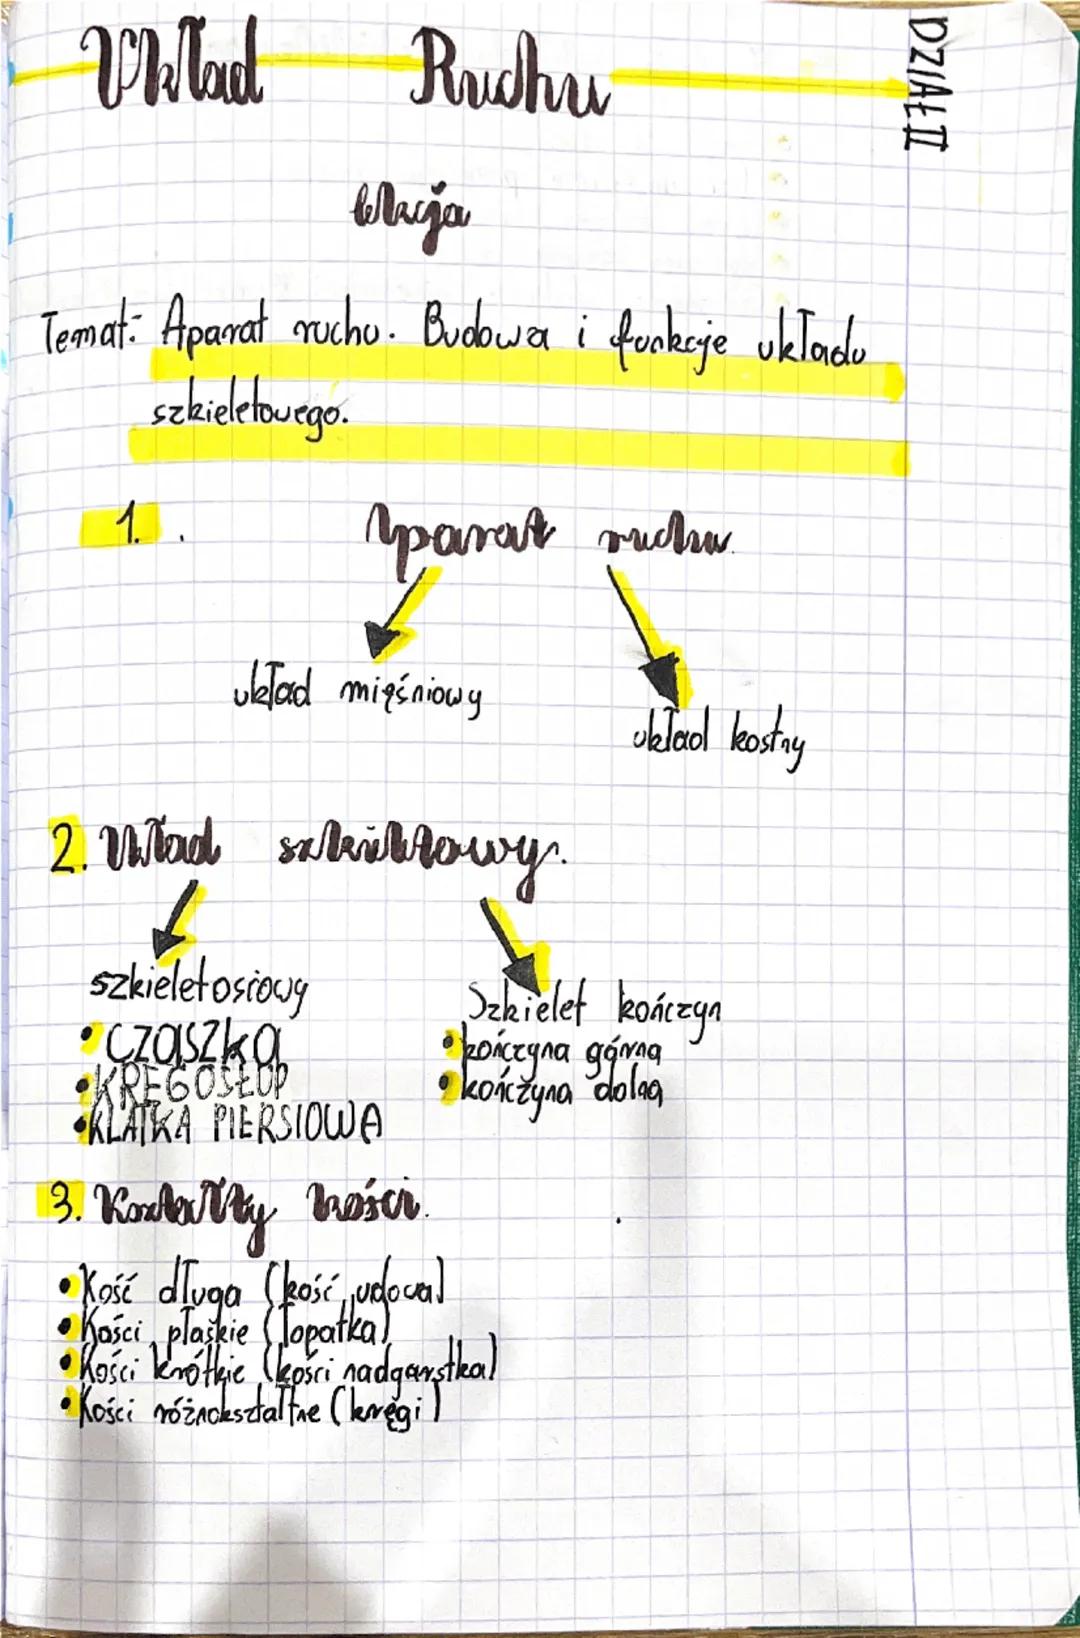 Układ Ruchu
DZIAŁ II
lekcja
Temat: Aparat ruchu. Budowa i funkcje układu
szkieletowego.
1. Aparat ruchu.
układ mięśniowy
układ kostny
2. Układ szkieletowy.
szkielet osiowy
• CZASZKA
• KRĘGOSŁUP
• KLATKA PIERSIOWA
Szkielet kończyn
• kończyna górna
• kończyna dolna
3. Kształty kości.
• Kość długa (kość udowa)
• Kości płaskie (łopatka)
• Kości krótkie (kości nadgarstka)
• Kości różnokształtne (kręgi)